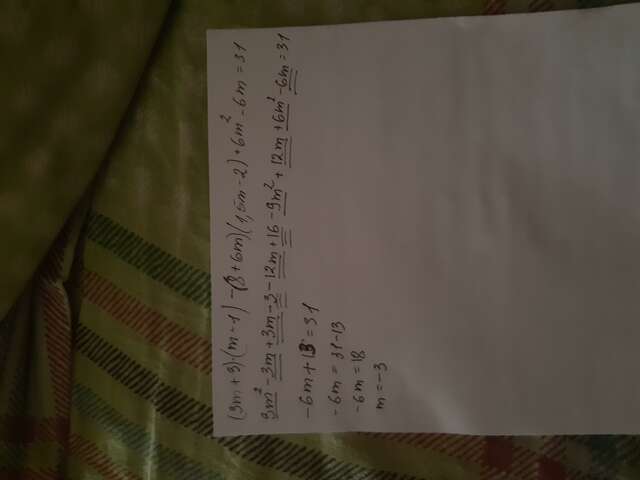 (3m+3)·(m-1) -(8+6m)(1,5m-2)+6m²-6m=31
3m²-3m+3m-3-12m+16-9m²+12m+6m²-6m=31
-6m+13=31
-6m=31-13
-6m=18
m=-3